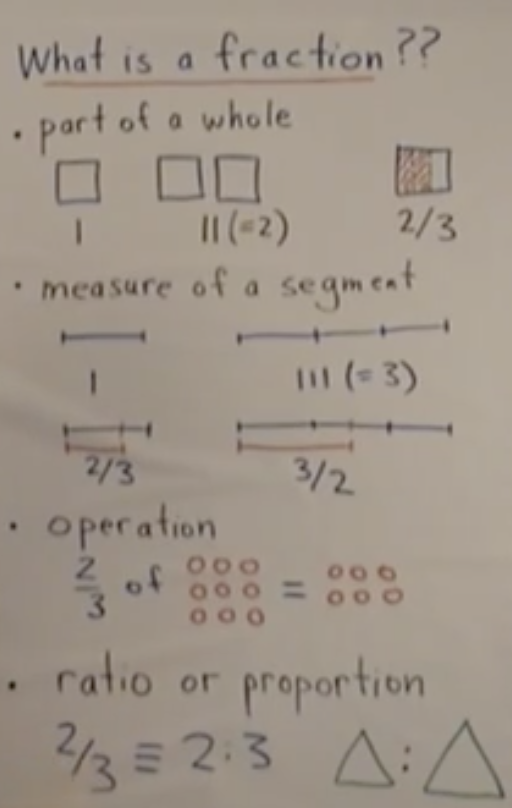 What is a fraction??
• part of a whole
1 11 (=2) 2/3
• measure of a segment
1 111 (= 3)
2/3 3/2
• operation
2/3 of =
• ratio or proportion
2/3 ≡ 2:3 :